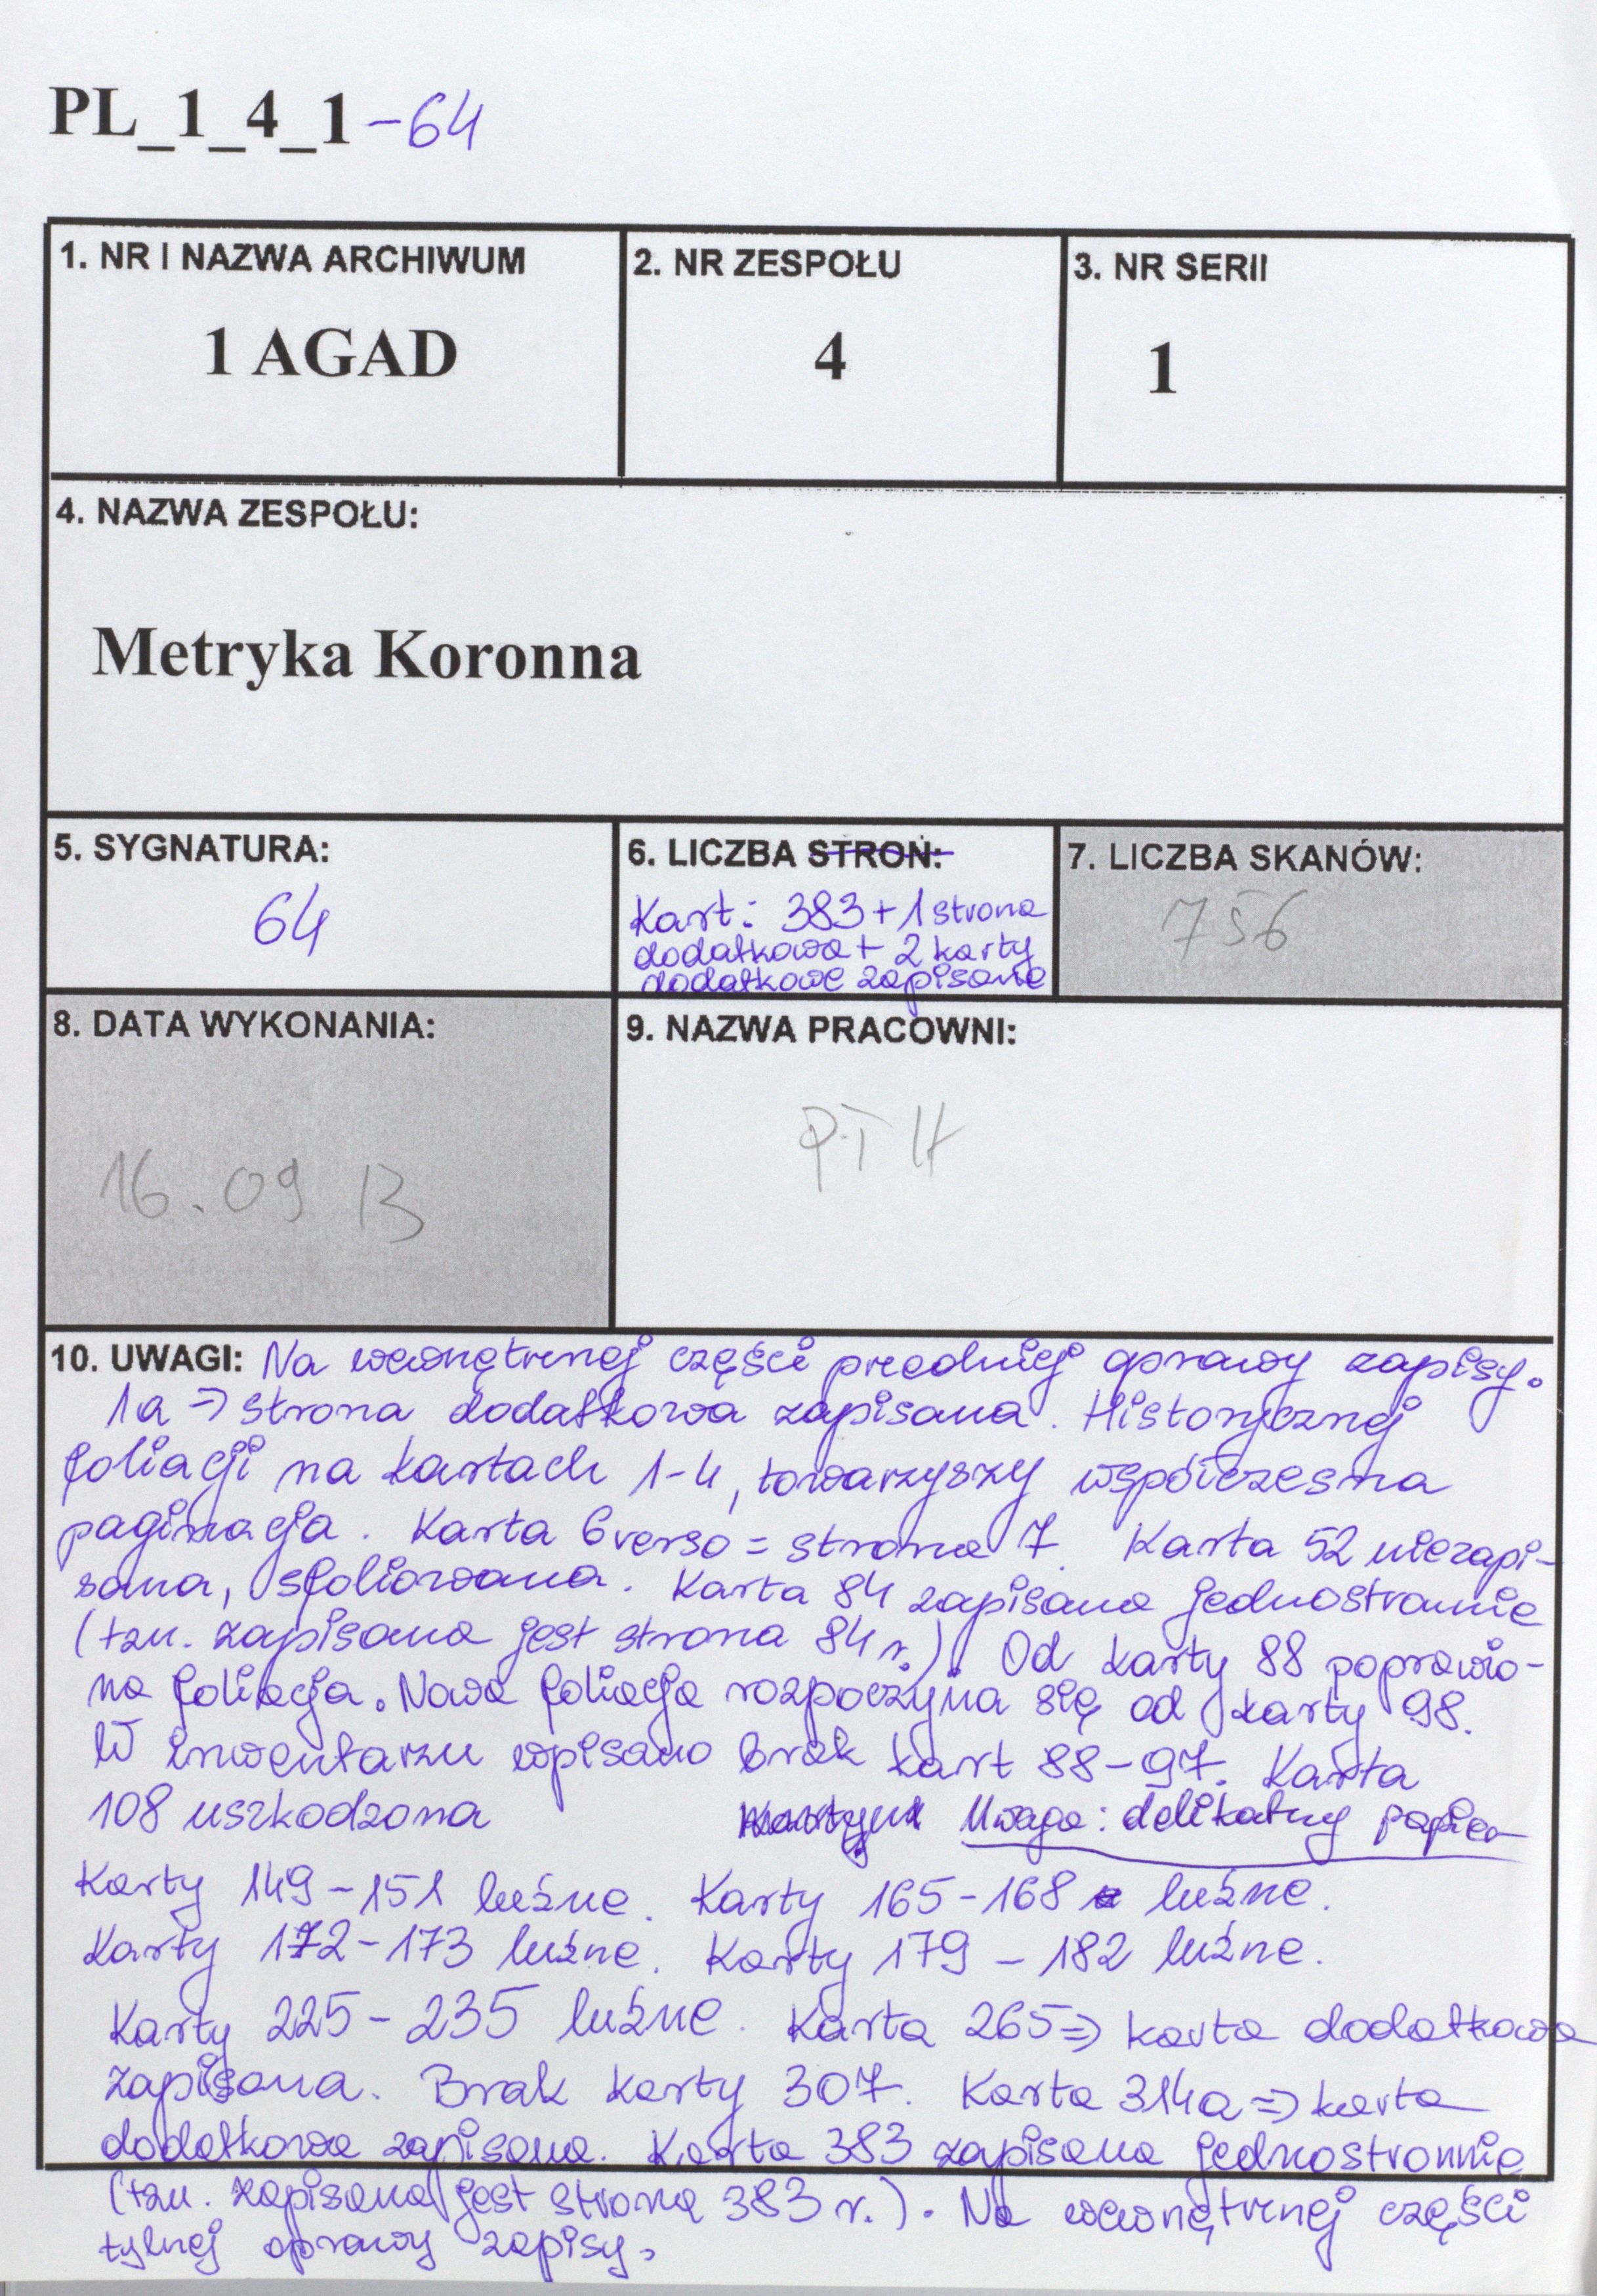 PL_1_4_1-64
1. NR I NAZWA ARCHIWUM
1 AGAD
2. NR ZESPOŁU
4
3. NR SERII
1
4. NAZWA ZESPOŁU:
Metryka Koronna
5. SYGNATURA:
64
6. LICZBA STRON:
Kart: 383 + 1 strona
dodatkowa + 2 karty
dodatkowe zapisane
7. LICZBA SKANÓW:
756
8. DATA WYKONANIA:
16.09 13
9. NAZWA PRACOWNI:
10. UWAGI: Na wewnętrznej części przedniej oprawy zapisy.
1a => strona dodatkowa zapisana. Historycznej
foliacji na kartach 1-4, towarzyszy współczesna
paginacja. Karta 6 verso = strona 7. Karta 52 niezapi-
sana, sfoliowana. Karta 84 zapisana jednostronnie
(tzn. zapisana jest strona 84 r.). Od karty 88 poprawio-
na foliacja. Nowa foliacja rozpoczyna się od karty 98.
W inwentarzu wpisano brak kart 88-97. Karta
108 uszkodzona Uwaga: delikatny papier
Karty 149-151 luźne. Karty 165-168 luźne.
Karty 172-173 luźne. Karty 179-182 luźne.
Karty 225-235 luźne. Karta 265 => karta dodatkowa
zapisana. Brak karty 307. Karta 314a => karta
dodatkowa zapisana. Karta 383 zapisana jednostronnie
(tzn. zapisana jest strona 383 r.). Na wewnętrznej części
tylnej oprawy zapisy.